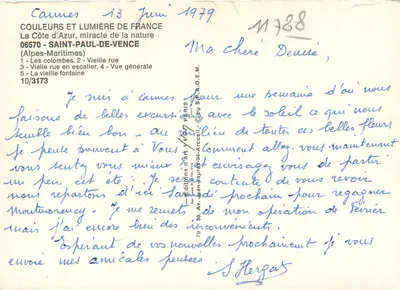 Cannes 13 Juin 1979
11788
COULEURS ET LUMIÈRE DE FRANCE
La Côte d'Azur, miracle de la nature
06570 - SAINT-PAUL-DE-VENCE
(Alpes-Maritimes)
1 - Les colombes, 2 - Vieille rue
3 - Vieille rue en escalier. 4 - Vue générale
5 - La vieille fontaine
10/3173
Ma chère Denise,
Je suis à cannes pour une semaine d'où nous
faisons de belles excursions avec le soleil ce qui nous
semble bien bon - au milieu de toutes ces belles fleurs
Je pense souvent à Vous - comment allez-vous maintenant
vous sentez vous mieux et envisagez vous de partir
un peu cet été : Je serai contente de vous revoir
nous repartons d'ici Samedi prochain pour regagner
Montmorency - Je me remets de mon opération de Février
mais j'ai encore bien des inconvénients.
Espérant de vos nouvelles prochainement je vous
envoie mes amicales pensées
S Hergat
PARIS